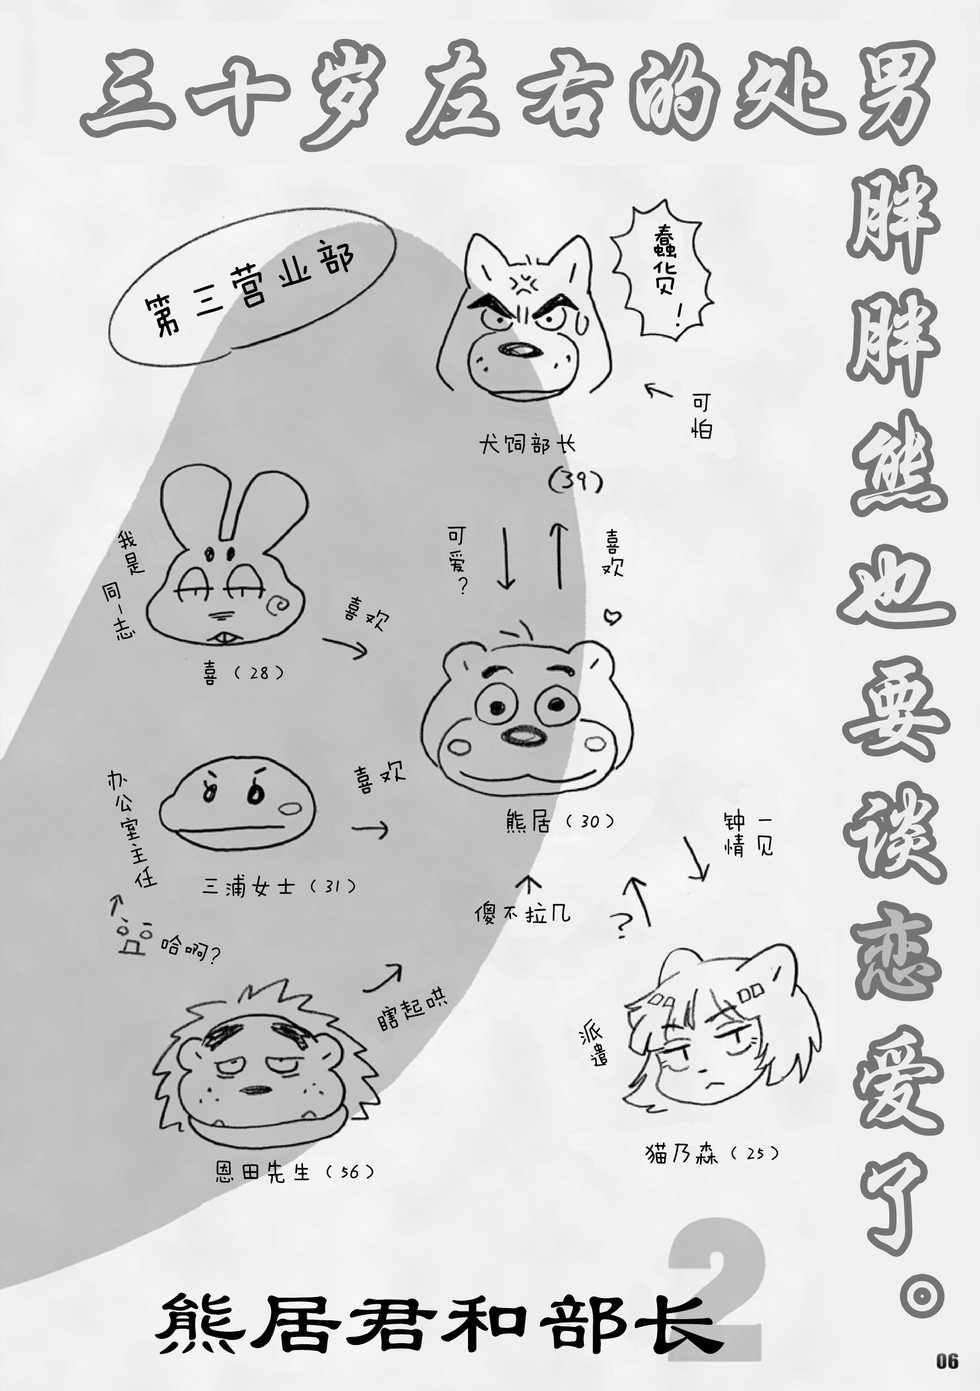 三十岁左右的处男
胖胖熊也要谈恋爱了。
第三营业部
蠢货！
可怕
犬饲部长
(39)
可爱？
喜欢
我是
同-志
喜（28）
喜欢
熊居（30）
办公室主任
喜欢
三浦女士（31）
哈啊？
一见
钟情
傻不拉几
？
瞎起哄
恩田先生（56）
派遣
猫乃森（25）
熊居君和部长
2
06